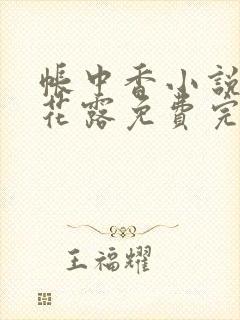 帳中香小說
花露免費完
王福耀